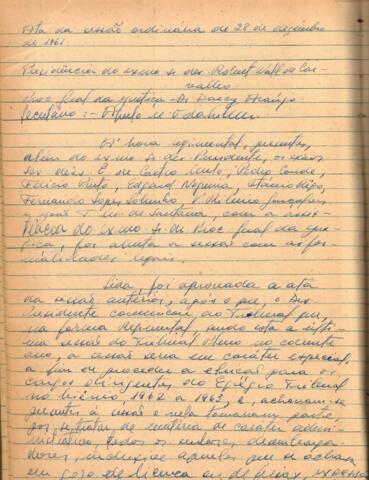 Ata da sessão ordinária de 28 de dezembro
de 1961.
Presidência do exmo sr des. Robert Wall de Car-
valho
Proc. geral da justiça - Dr Darcy Araújo
Secretário: -
À hora regimental, presentes,
além do exmo sr des. Presidente, os exmos
srs. des. E de Castro Neto, Pedro Conde,
Felício Pinto, Edgard Nogueira,
Fernando Lopes Sobrinho,
e de Santana, com a assis-
tência do exmo sr. dr Proc. geral da jus-
tiça, foi aberta a sessão com as for-
malidades legais.
Lida, foi aprovada a ata
da sessão anterior, após o que, o Des.
Presidente comunicou ao Tribunal que,
na forma regimental, sendo esta a últi-
ma sessão do Tribunal Pleno no corrente
ano, a sessão seria em caráter especial,
a fim de proceder a eleição para os
cargos dirigentes do Egrégio Tribunal
no biênio, 1962 a 1963, e, achavam-se
presentes à sessão e nela tomariam parte,
por se tratar de matéria de caráter admi-
nistrativo, todos os senhores desembarga-
dores, inclusive aqueles que se achavam
em gozo de licença ou de férias,